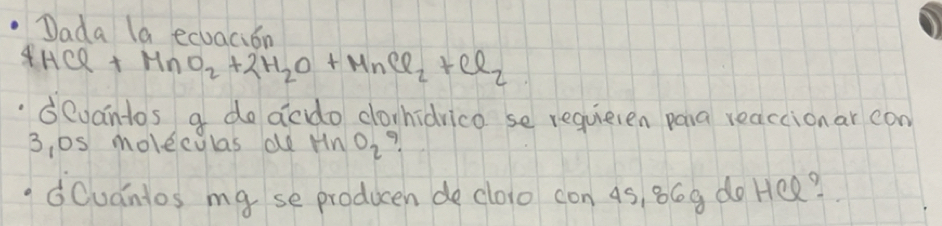 • Dada la ecuación
4HCl + MnO₂ + 2H₂O + MnCl₂ + Cl₂
• ¿Cuántos g de ácido clorhídrico se requieren para reaccionar con
3,05 moléculas de MnO₂?
• ¿Cuántos mg se producen de cloro con 45,86g de HCl?